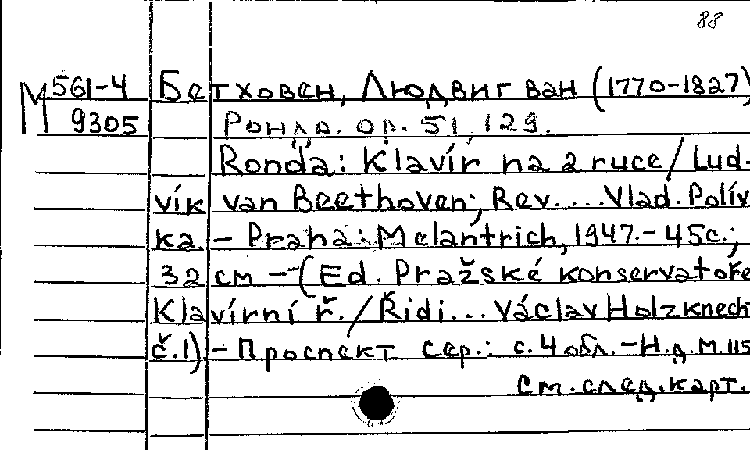 88
М 561-4 Бетховен, Людвиг ван (1770-1827)
9305 Рондо. Ор. 51, 129.
Ronda: Klavír na 2 ruce / Lud-
vík van Beethoven; Rev.... Vlad. Polív
ka. - Praha: Melantrich, 1947. - 45c.;
32 cm - (Ed. Pražské konservatoře
Klavírní ř. / Řidi... Václav Holzknecht
č. 1) - Проспект сер.: с. 4 обл. - Н.д. М. 115
См. след. карт.